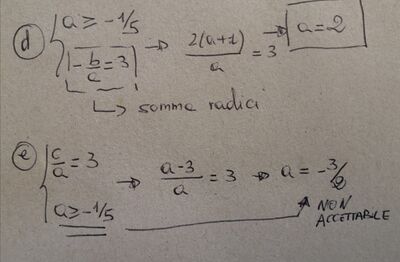 d) a ≥ -1/5
-b/a = 3 → 2(a+1)/a = 3 → a = 2
↳ somma radici
e) c/a = 3 → a-3/a = 3 → a = -3/2
a ≥ -1/5
NON ACCETTABILE